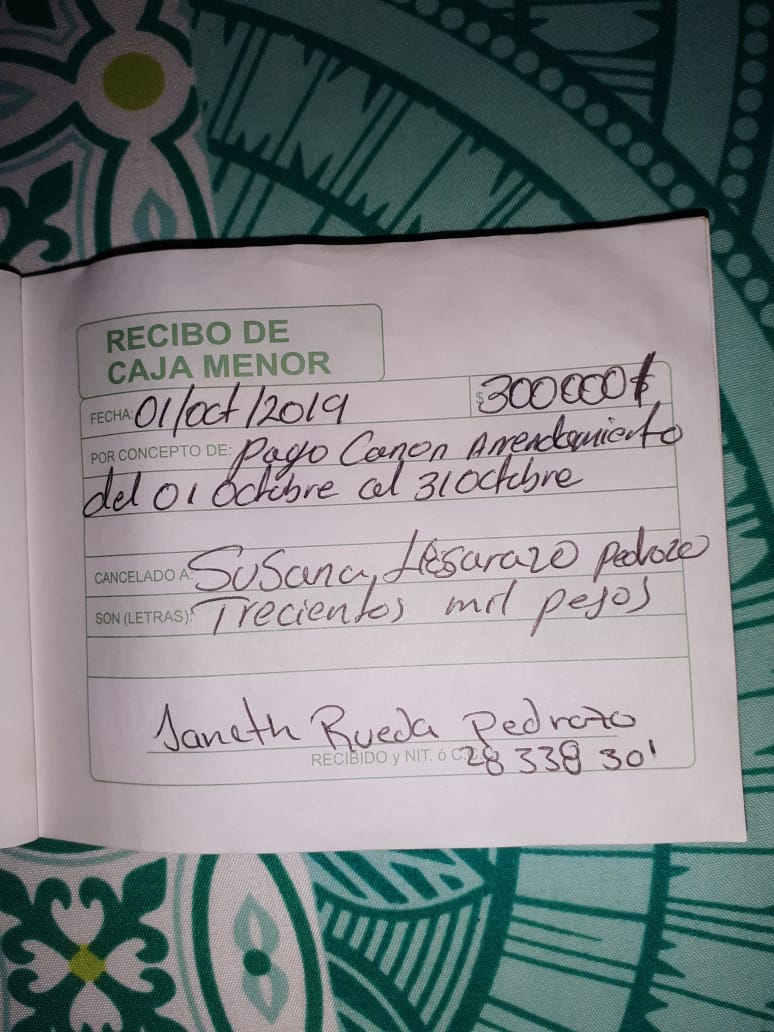 RECIBO DE
CAJA MENOR
FECHA: 01/oct/2019 $ 300000$
POR CONCEPTO DE: pago Canon Arrendamiento
del 01 Octubre al 31 Octubre
CANCELADO A: Susana, Lesarazo pedrozo
SON (LETRAS): Trecientos mil pesos
Janeth Rueda Pedrozo
RECIBIDO y NIT. ó C.C. 28 338 301